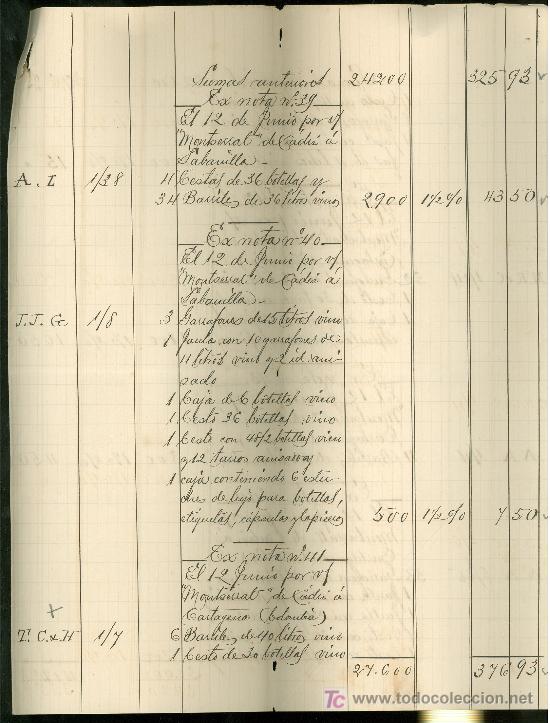 Sumas anteriores 24200 325 93
Ex nota nº 39
El 12 de Junio por v/
"Montserrat" de Cádiz á
Sabanilla
A. I 1/38 4 Cestas de 36 botellas y
34 Barriles de 36 litros vino 2900 1½% 43 50
Ex nota nº 40
El 12 de Junio por v/
"Montserrat" de Cádiz á
Sabanilla
J. J. G 1/8 3 Garrafones de 15 litros vino
1 Jaula con 10 garrafones de
4 litros vino y 2 id. anisado
1 Caja de 6 botellas vino
1 Cesto 36 botellas vino
1 Cesto con 48/2 botellas vino
y 12 tarros
1 caja conteniendo 6 estuches
de lujo para botellas,
etiquetas, cápsulas y lapiceros 500 1½% 7 50
Ex nota nº 41
El 12 Junio por v/
"Montserrat" de Cádiz á
Cartagena (Colombia)
T. C. & H 1/7 6 Barriles de 40 litros vino
1 Cesto de 30 botellas vino
27.600 376 93
TC www.todocoleccion.net